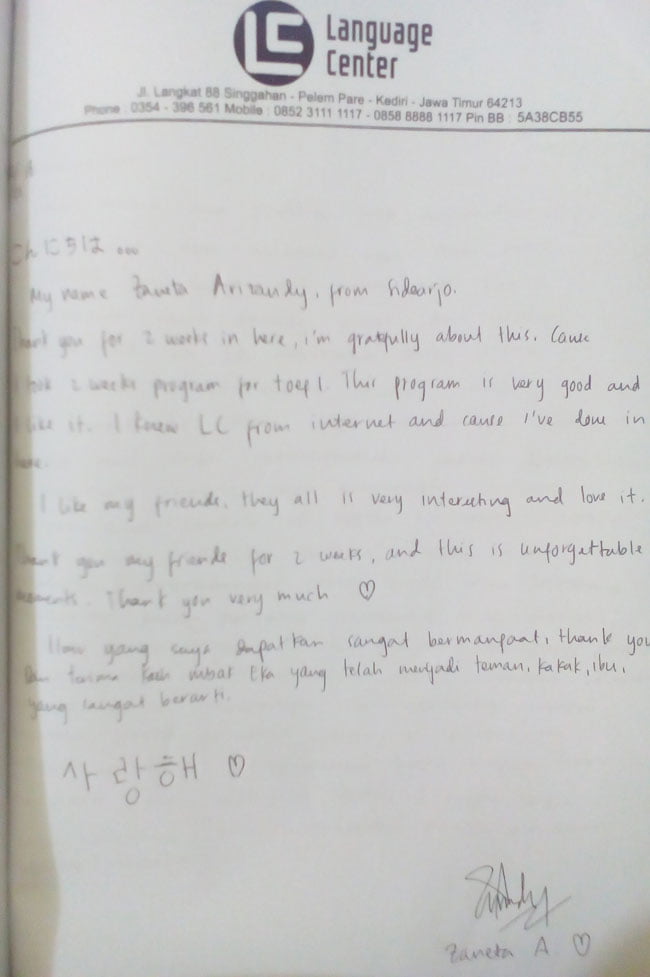 LC Language
Center
Jl. Langkat 88 Singgahan - Pelem Pare - Kediri - Jawa Timur 64213
Phone : 0354 - 396 561 Mobile : 0852 3111 1117 - 0858 8888 1117 Pin BB : 5A38CB55
にちは ...
My name Zaneta Arizandy, from Sidoarjo.
Thank you for 2 weeks in here, i'm gratefully about this. Cause
I took 2 weeks program for toefl. This program is very good and
I like it. I know LC from internet and cause I've done in
here.
I like my friends, they all is very interesting and love it.
Thank you my friends for 2 weeks, and this is unforgettable
moments. Thank you very much ♡
Ilmu yang saya dapatkan sangat bermanfaat, thank you
Dan terima kasih mbak Eka yang telah menjadi teman, kakak, ibu,
yang sangat berarti.
사랑해 ♡
Zaneta A ♡